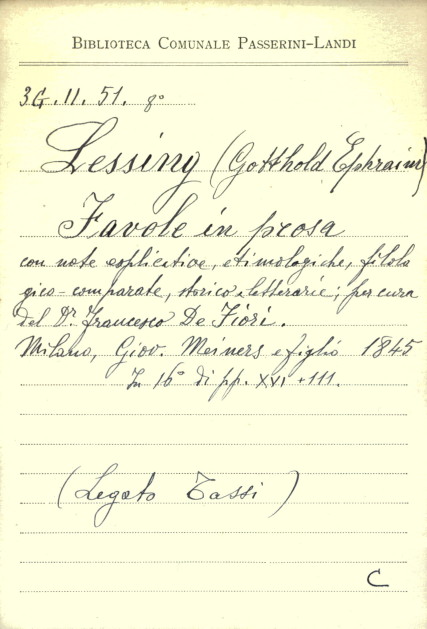 BIBLIOTECA COMUNALE PASSERINI-LANDI
3G.II.51. 8°
Lessing (Gotthold Ephraim)
Favole in prosa
con note esplicative, etimologiche, filolo
gico-comparate, storico-letterarie; per cura
del Dr. Francesco De Fiori.
Milano, Giov. Meiners e figlio 1845
In 16° di pp. XVI+111.
(Legato Tassi)
C